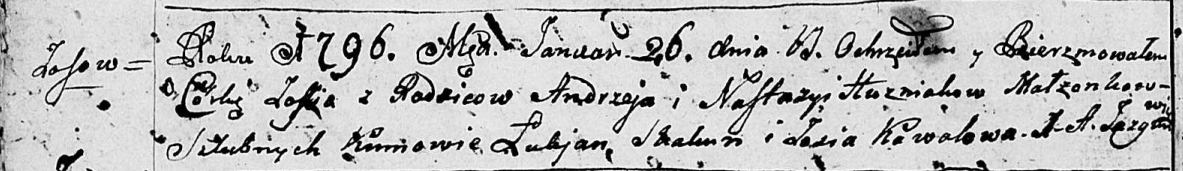 Łosow=
Roku 1796. Msca Januar. 26. dnia W. Ochrzciłem y Bierzmowałem
Corkę Zofia z Rodzicow Andrzeja i Nastazyi Huzniakow Małzonkow=
Szlubnych Kumowie Lukjan, Skakun i Zosia Kowalowa. A.